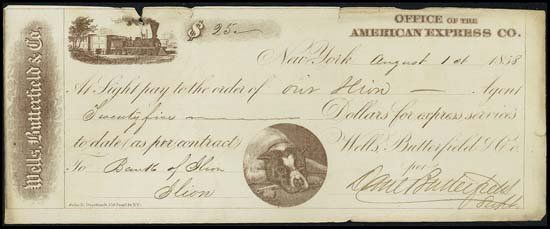 Wells, Butterfield & Co.
$ 25
OFFICE OF THE
AMERICAN EXPRESS CO.
New York August 1st 1858
At Sight pay to the order of our Ilion Agent
Twenty five Dollars for express services
to date (as per contract) Wells, Butterfield & Co.
To Bank of Ilion per
Ilion Danl Butterfield